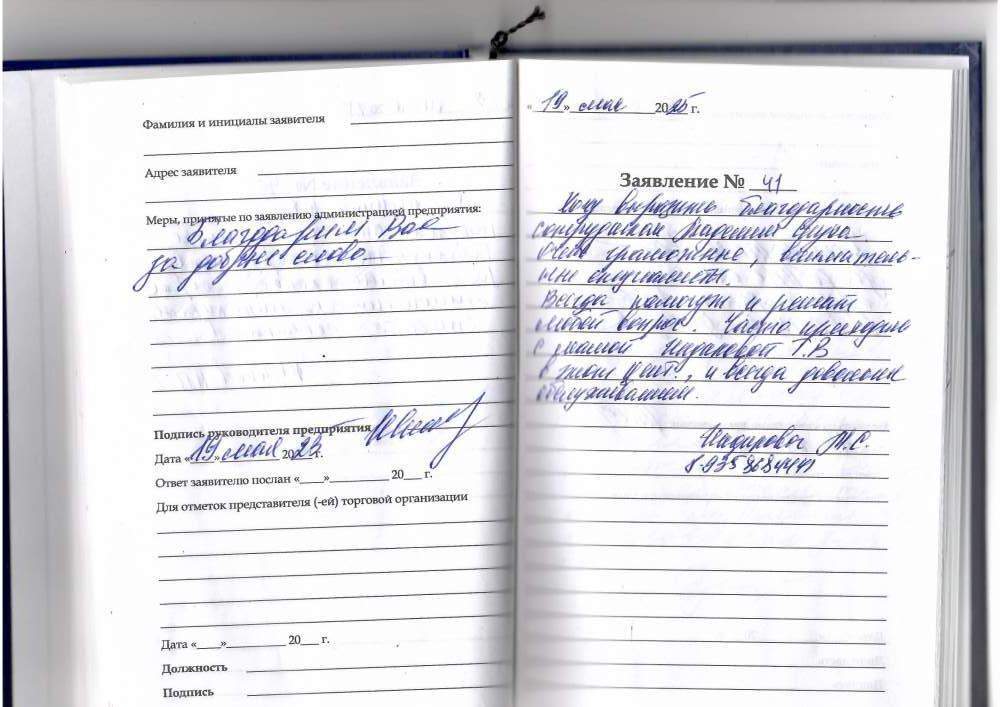 Фамилия и инициалы заявителя
Адрес заявителя
Меры, принятые по заявлению администрацией предприятия:
Благодарим Вас
за добрые слова
Подпись руководителя предприятия
Дата «19» мая 2025 г.
Ответ заявителю послан «___»__________ 20___ г.
Для отметок представителя (-ей) торговой организации
Дата «____»__________ 20___ г.
Должность
Подпись
«19» мая 2025 г.
Заявление № 41
Хочу выразить благодарность
сотрудникам
Очень грамотные, вниматель-
ные специалисты.
Всегда помогут и решат
любой вопрос. Часто приходим
с мамой Т.В
в этот цент., и всегда довольны
обслуживанием.
М.С.